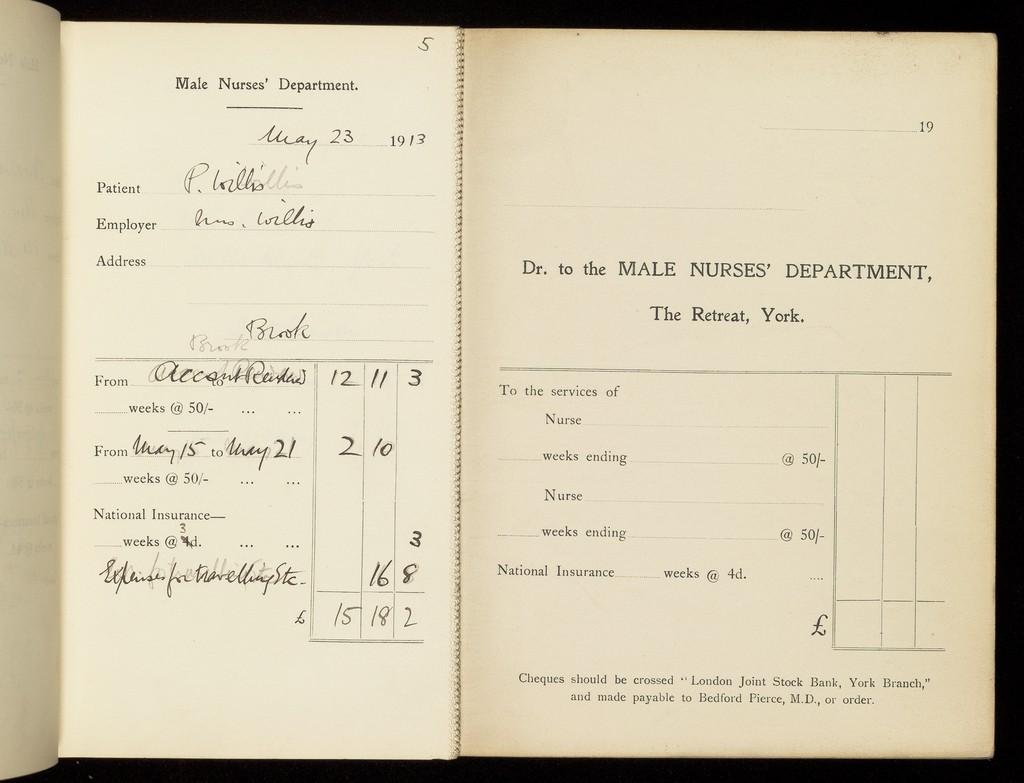 5
Male Nurses' Department.
May 23 1913
Patient P. Willis
Employer Mrs. Willis
Address
Brook
Brook
From Account Rendered to 12 11 3
weeks @ 50/- ... ...
From May 15 to May 21 2 10
weeks @ 50/- ... ...
National Insurance—
3
weeks @ 4d. ... ... 3
Expenses for travelling Etc - 16 8
£ 15 18 2
19
Dr. to the MALE NURSES' DEPARTMENT,
The Retreat, York.
To the services of
Nurse
weeks ending @ 50/-
Nurse
weeks ending @ 50/-
National Insurance weeks @ 4d. ....
£
Cheques should be crossed "London Joint Stock Bank, York Branch,"
and made payable to Bedford Pierce, M.D., or order.